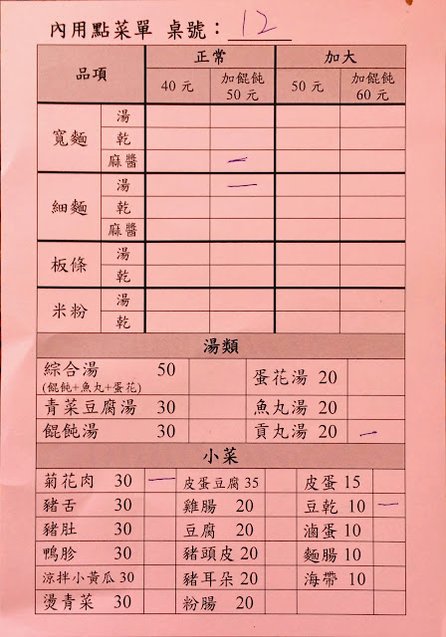 內用點菜單 桌號：12
品項 正常 加大
40 元 加餛飩 50 元 50 元 加餛飩 60 元
寬麵 湯
乾
麻醬 一
細麵 湯 一
乾
麻醬
板條 湯
乾
米粉 湯
乾
湯類
綜合湯 50 蛋花湯 20
(餛飩+魚丸+蛋花)
青菜豆腐湯 30 魚丸湯 20
餛飩湯 30 貢丸湯 20 一
小菜
菊花肉 30 一 皮蛋豆腐 35 皮蛋 15
豬舌 30 雞腸 20 豆乾 10 一
豬肚 30 豆腐 20 滷蛋 10
鴨胗 30 豬頭皮 20 麵腸 10
涼拌小黃瓜 30 豬耳朵 20 海帶 10
燙青菜 30 粉腸 20